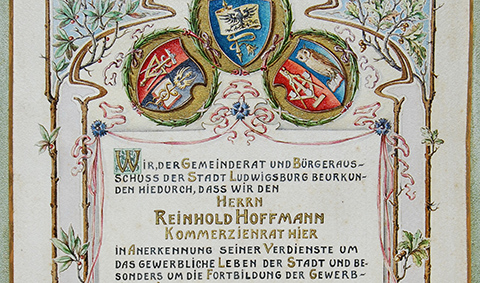 WIR, DER GEMEINDERAT UND BÜRGERAUS-
SCHUSS DER STADT LUDWIGSBURG BEURKUN-
DEN HIEDURCH, DASS WIR DEN
HERRN
REINHOLD HOFFMANN
KOMMERZIENRAT HIER
IN ANERKENNUNG SEINER VERDIENSTE UM
DAS GEWERBLICHE LEBEN DER STADT UND BE-
SONDERS UM DIE FORTBILDUNG DER GEWERB-